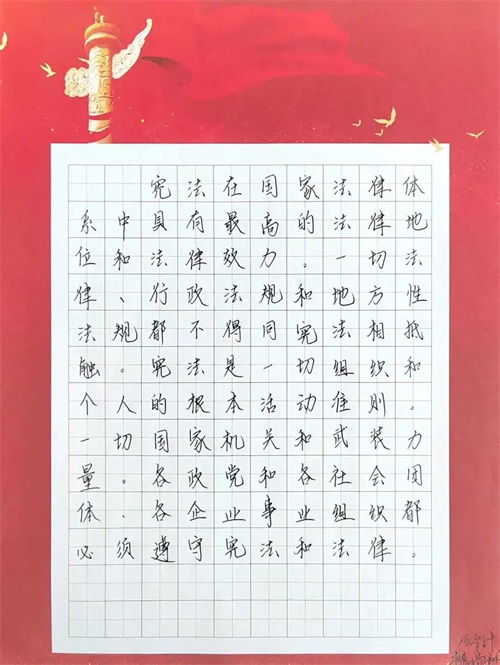 宪法在国家法律体
系中具有最高的法律地
位和法律效力。一切法
律、行政法规和地方性
法规都不得同宪法相抵
触。宪法是一切组织和
个人的根本活动准则。
一切国家机关和武装力
量。各政党和各社会团
体、各企业事业组织都
必须遵守宪法和法律。